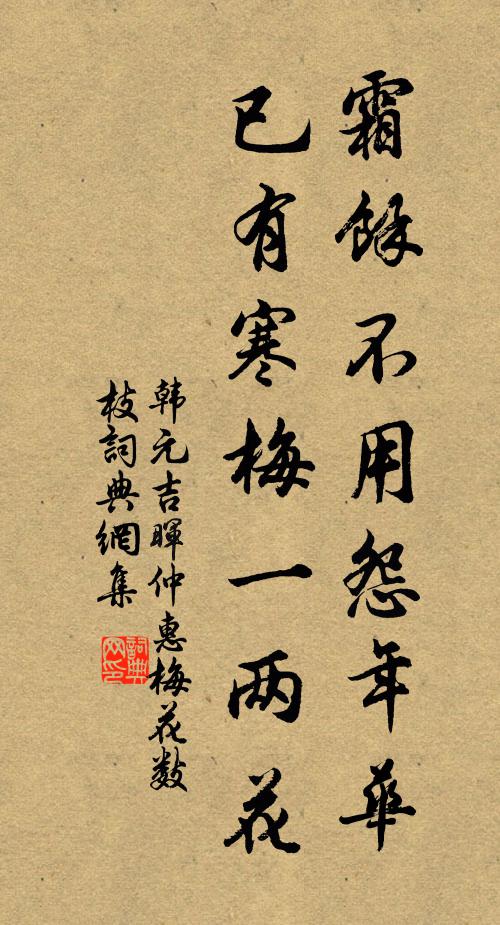 霜餘不用怨年華
已有寒梅一两花
韩元吉暉仲惠梅花数
枝詞典網集
詞典
网印